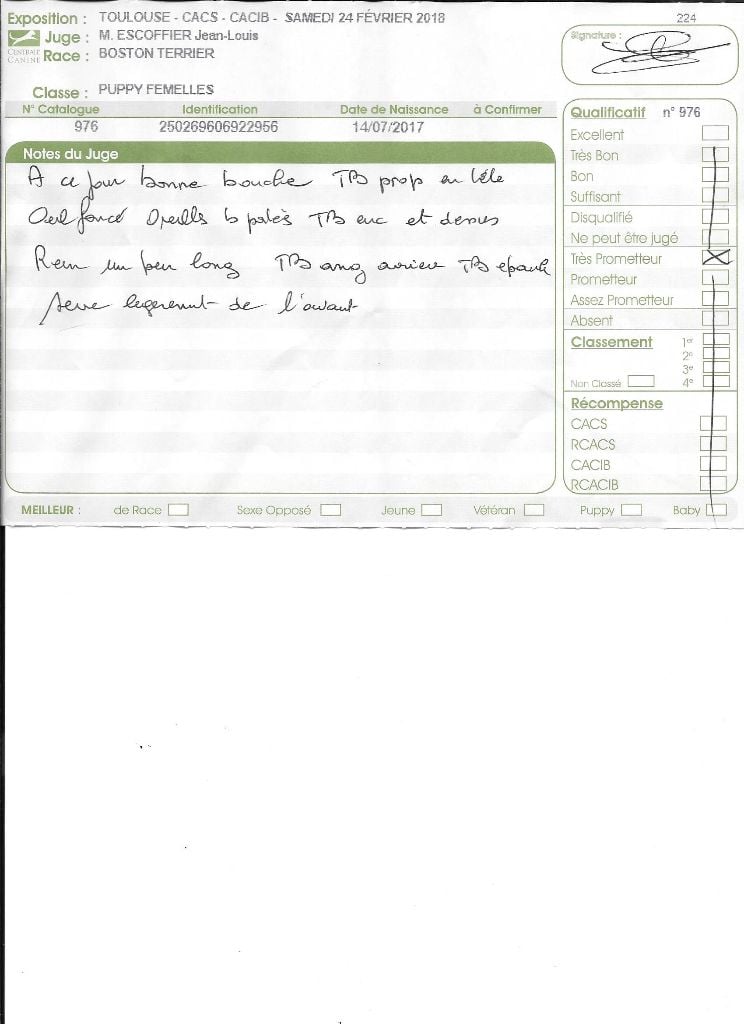 Exposition : TOULOUSE - CACS - CACIB - SAMEDI 24 FÉVRIER 2018
224
Juge : M. ESCOFFIER Jean-Louis
CENTRALE CANINE
Race : BOSTON TERRIER
Signature :
Classe : PUPPY FEMELLES
N° Catalogue Identification Date de Naissance à Confirmer
976 250269606922956 14/07/2017
Notes du Juge
A ce jour bonne bouche TB prop en tête
Oeil foncé Oreilles b portés TB enc et dessus
Rein un peu long TB ang arriere TB epaule
serre legerement de l'avant
Qualificatif n° 976
Excellent
Très Bon
Bon
Suffisant
Disqualifié
Ne peut être jugé
Très Prometteur
Prometteur
Assez Prometteur
Absent
Classement 1er
2e
3e
Non Classé 4e
Récompense
CACS
RCACS
CACIB
RCACIB
MEILLEUR : de Race Sexe Opposé Jeune Vétéran Puppy Baby